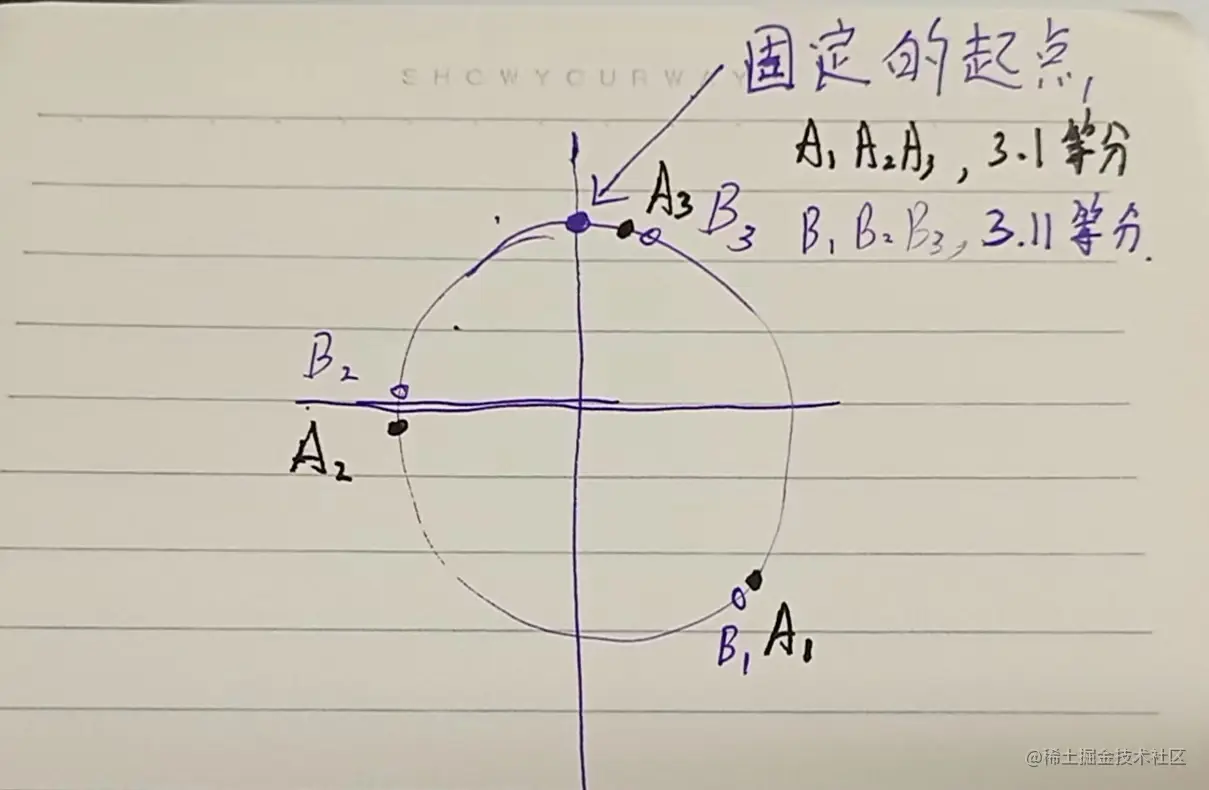 SHOWYOURWAY
固定的起点,
A₁ A₂A₃, 3.1等分
A₃ B₃ B₁ B₂ B₃, 3.11等分.
B₂
A₂
B₁ A₁
@稀土掘金技术社区